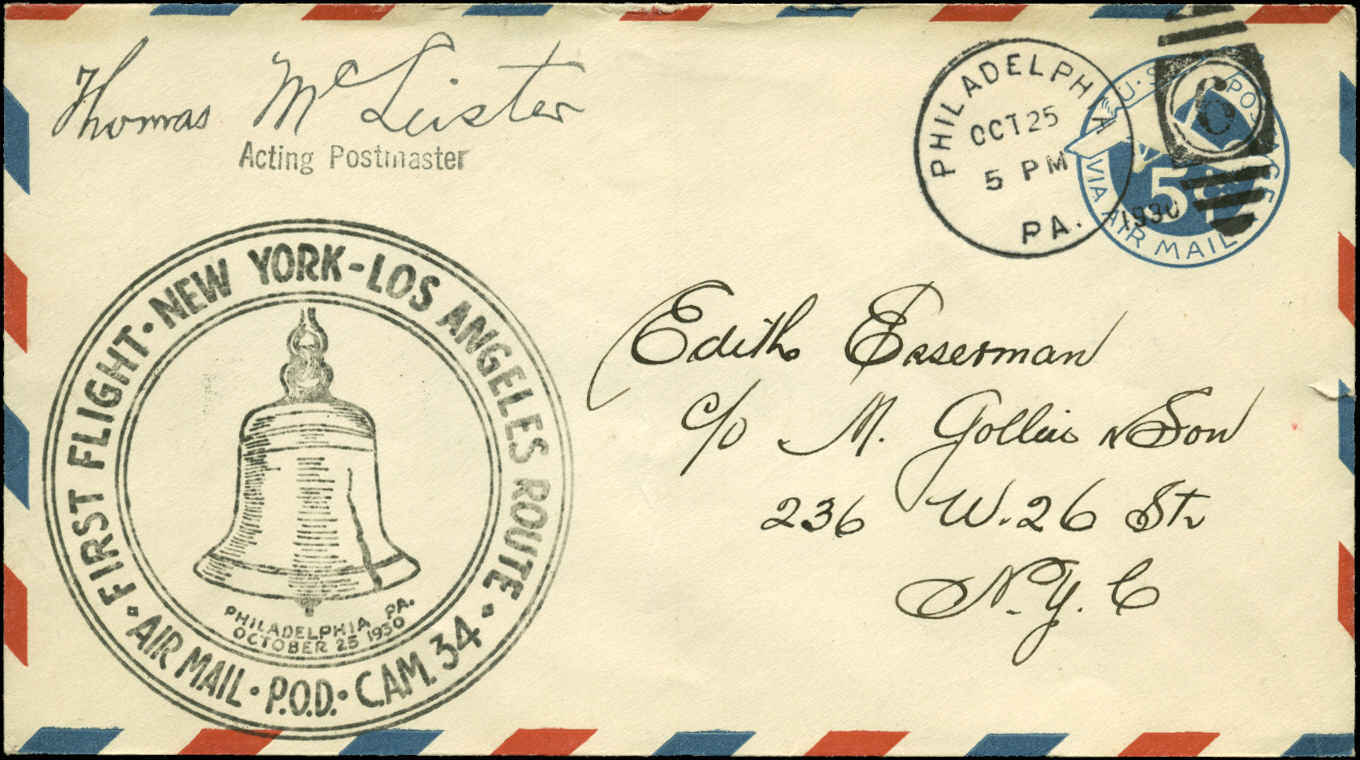 Thomas McLister
Acting Postmaster
PHILADELPHIA
OCT 25
5 PM
1930
PA.
6
U.S. POSTAGE
5¢
VIA AIR MAIL
FIRST FLIGHT · NEW YORK - LOS ANGELES ROUTE ·
PHILADELPHIA PA.
OCTOBER 25 1930
AIR MAIL · P.O.D. · C.A.M. 34 ·
Edith Esserman
c/o M. & Son
236 W. 26 St.
N.Y.C